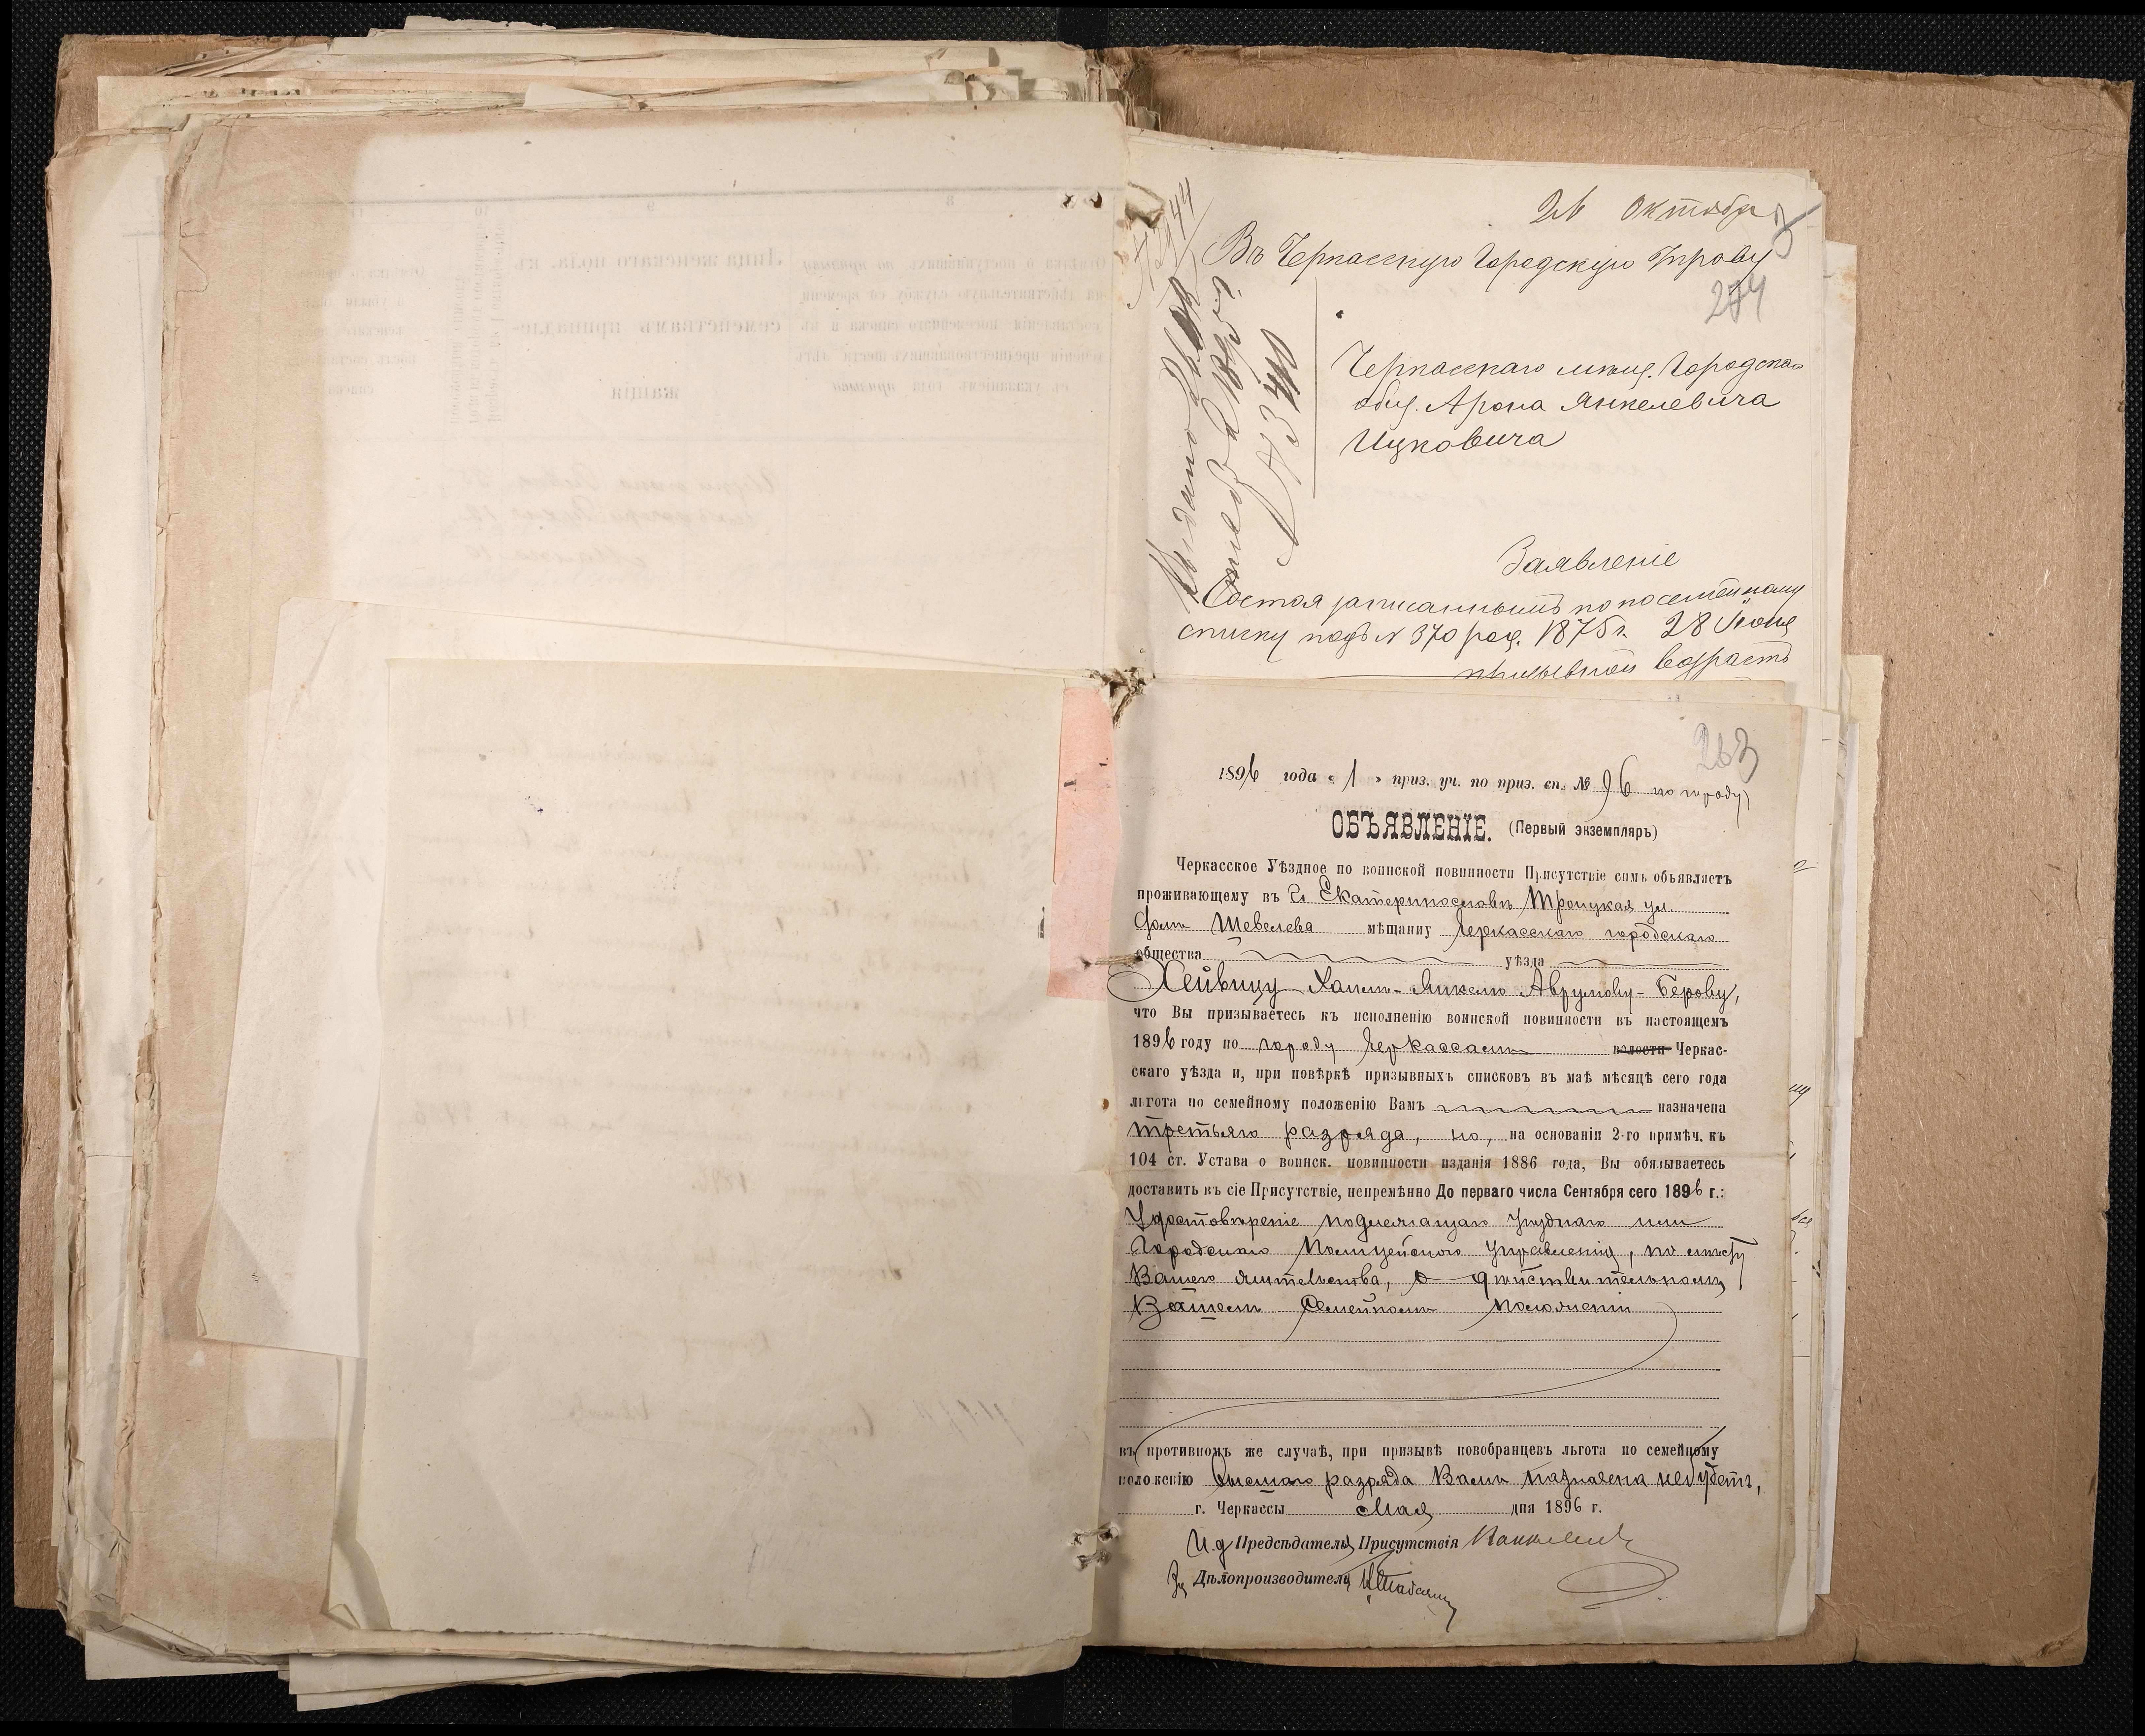 26 Октября
Въ Черкасскую Городскую Управу
274
Черкасскаго мѣщ. Городскаго
общ. Арона Янкелевича
Ицковича
Заявленіе
Состоя записаннымъ по посемейному
списку подъ № 370 род. 1875 г. 28 Іюня
призывной возрастъ
263
1896 года « 1 » приз. уч. по приз. сп. № 96 по городу
ОБЪЯВЛЕНІЕ. (Первый экземпляръ)
Черкасское Уѣздное по воинской повинности Присутствіе симъ объявляетъ
проживающему въ г. Екатеринославѣ Троицкая ул.
домъ Шевелева мѣщанну Черкасскаго городскаго
общества уѣзда
Хейвицу Хаимъ-Янкелю Аврумову-Берову,
что Вы призываетесь къ исполненію воинской повинности въ настоящемъ
1896 году по городу Черкассамъ волости Черкас-
скаго уѣзда и, при повѣркѣ призывныхъ списковъ въ маѣ мѣсяцѣ сего года
льгота по семейному положенію Вамъ назначена
третьяго разряда, но, на основаніи 2-го примѣч. къ
104 ст. Устава о воинск. повинности изданія 1886 года, Вы обязываетесь
доставить въ сіе Присутствіе, непремѣнно До перваго числа Сентября сего 1896 г.:
Удостовѣреніе подлежащаго Уѣзднаго или
Городскаго Полицейскаго Управленія, по мѣсту
Вашего жительства, о дѣйствительномъ
Вашемъ Семейномъ положеніи
въ противномъ же случаѣ, при призывѣ новобранцевъ льгота по семейному
положенію высшаго разряда Вамъ назначена не будетъ,
г. Черкассы Мая дня 1896 г.
И.д. Предсѣдателя Присутствія
За Дѣлопроизводителя